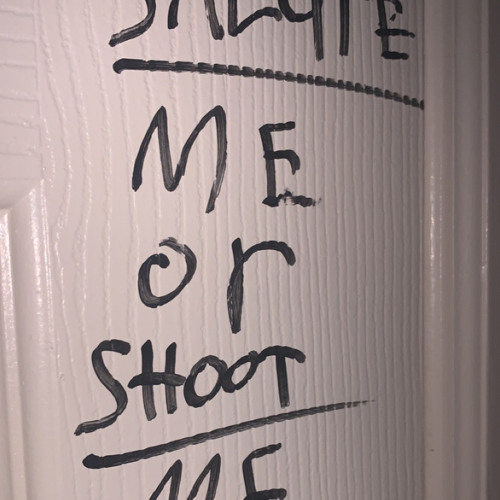 SALUTE
ME
or
SHOOT
ME